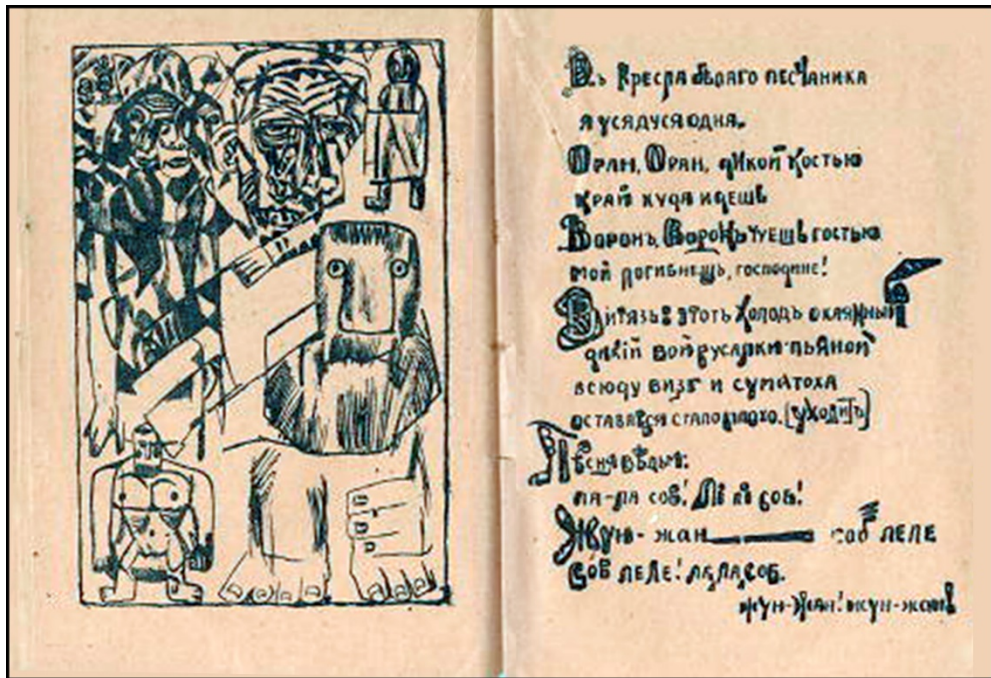 Въ кресла бѣлаго песчаника
я усядуся одна.
Оран, Оран, дикой костью
край куда идешь
Воронъ, Воронъ чуешь гостью
мой погибнешь, господине!
Витязь: этотъ холодъ окаянный
дикій вой русалки пьяной
всюду визг и суматоха
оставаться стало плохо. (уходитъ)
Пѣсня вѣдьм:
ла-ла сов! Ли ли соб!
Жун-жан соб леле
соб леле! ла, ла, соб.
жун-жан! жун-жан!